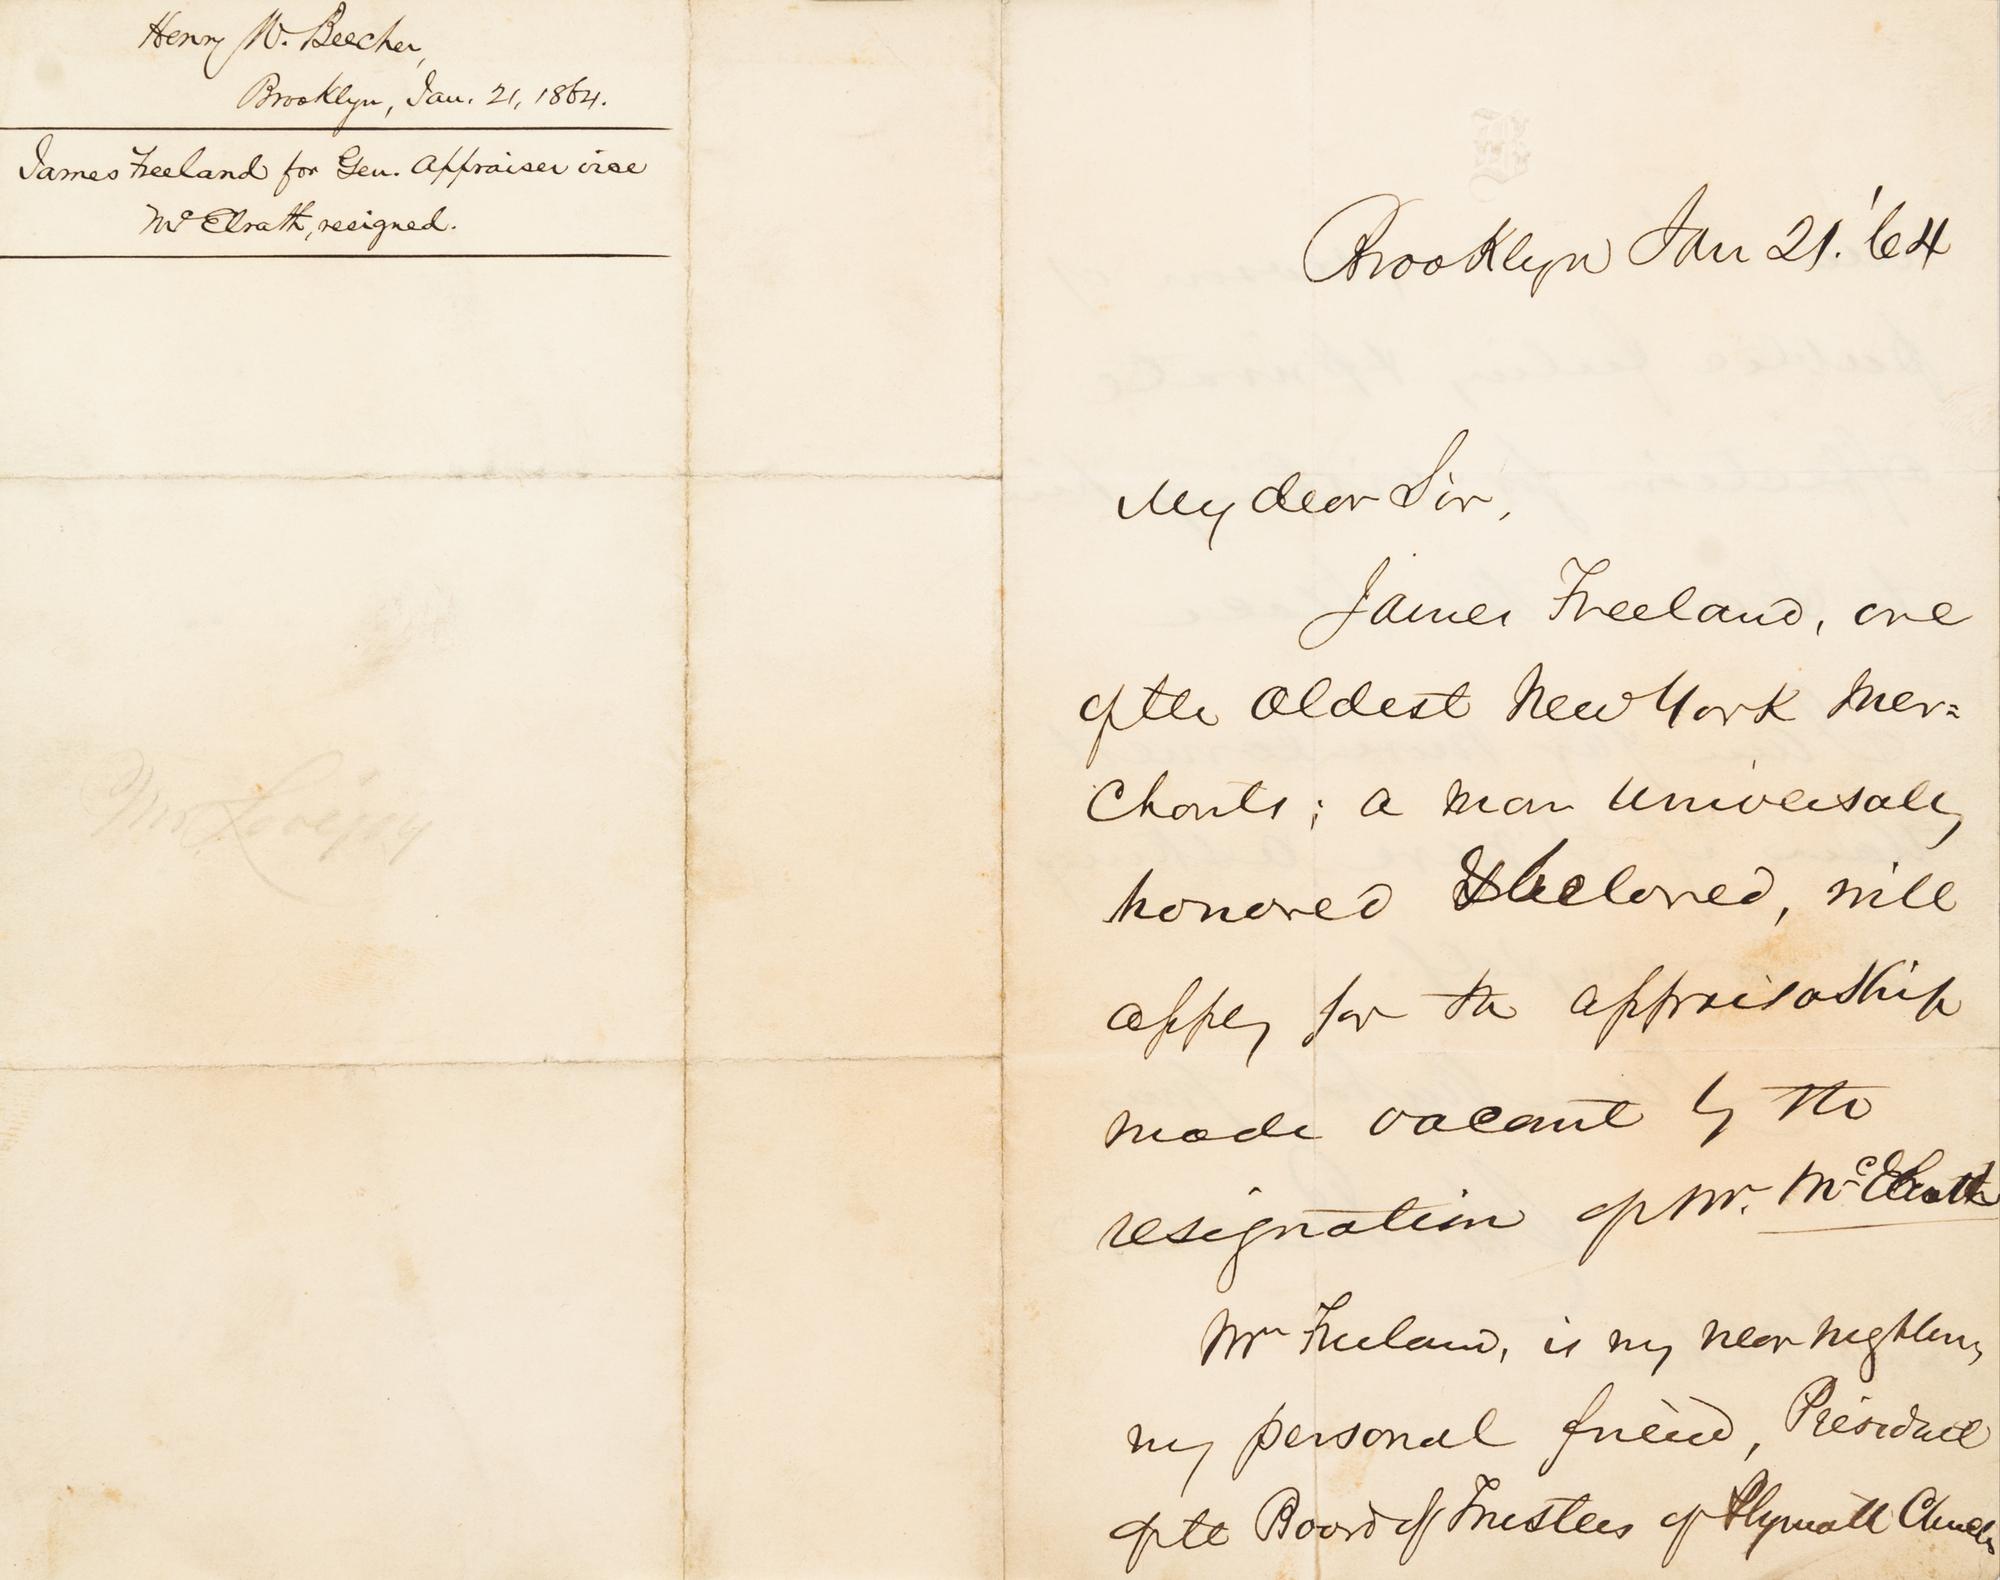 Henry W. Beecher,
Brooklyn, Jan. 21, 1864.
James Freeland for Gen. Appraiser vice
McElrath, resigned.
Mr. Lovejoy
Brooklyn Jan 21. '64
My dear Sir,
James Freeland, one
of the oldest New York Mer=
chants; a man universally
honored & beloved, will
apply for the appraisership
made vacant by the
resignation of Mr. McElrath
Mr Freeland, is my near neighbor,
my personal friend, President
of the Board of Trustees of Plymouth Church